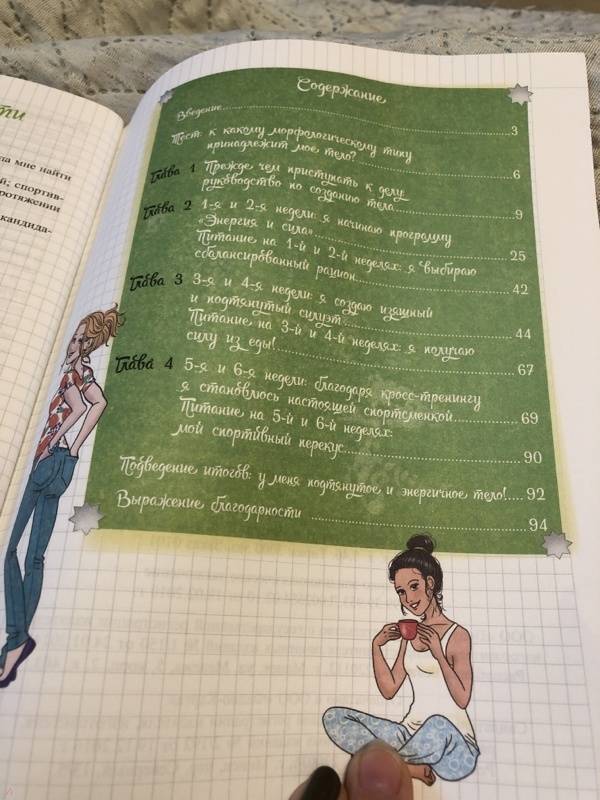 ти
ла мне найти
й; спортив-
ротяжении
кандида-
Содержание
Введение 3
Тест: к какому морфологическому типу
принадлежит мое тело? 6
Глава 1 Прежде чем приступать к делу:
руководство по созданию тела 9
Глава 2 1-я и 2-я недели: я начинаю программу
«Энергия и сила» 25
Питание на 1-й и 2-й неделях: я выбираю
сбалансированный рацион 42
Глава 3 3-я и 4-я недели: я создаю изящный
и подтянутый силуэт 44
Питание на 3-й и 4-й неделях: я получаю
силу из еды! 67
Глава 4 5-я и 6-я недели: благодаря кросс-тренингу
я становлюсь настоящей спортсменкой 69
Питание на 5-й и 6-й неделях:
мой спортивный перекус 90
Подведение итогов: у меня подтянутое и энергичное тело! 92
Выражение благодарности 94